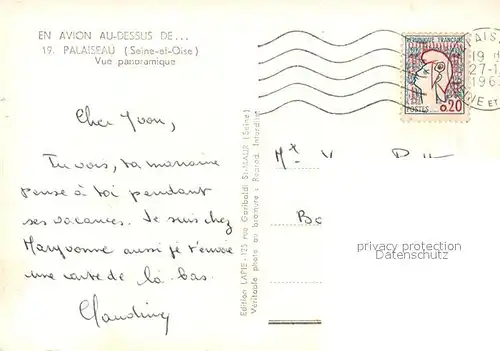 EN AVION AU-DESSUS DE...
19. PALAISEAU (Seine-et-Oise)
Vue panoramique
Cher Yvon,
Tu vois, ta marraine
pense à toi pendant
ses vacances. Je suis chez
Maryvonne aussi je t'envoie
une carte de là-bas.
Claudine
Edition LAPIE - 125 rue Garibaldi St-MAUR (Seine)
Véritable photo au bromure : Reprod. Interdite
REPUBLIQUE FRANÇAISE
POSTES 0,20
19
27-1
196
SEINE ET
privacy protection
akpool.de